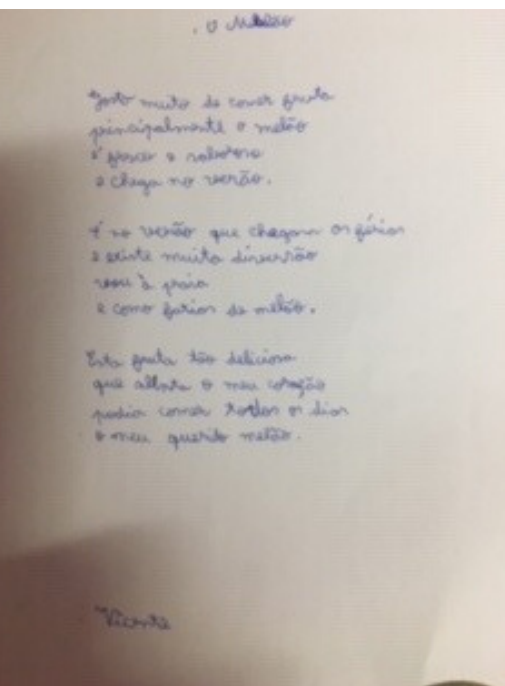 O Melão
Gosto muito de comer fruta
principalmente o melão
é fresco e saboroso
e chega no verão.
É no verão que chegam as férias
e existe muita diversão
vou à praia
e como fatias de melão.
Esta fruta tão deliciosa
que alegra o meu coração
podia comer todos os dias
o meu querido melão.
Vicente